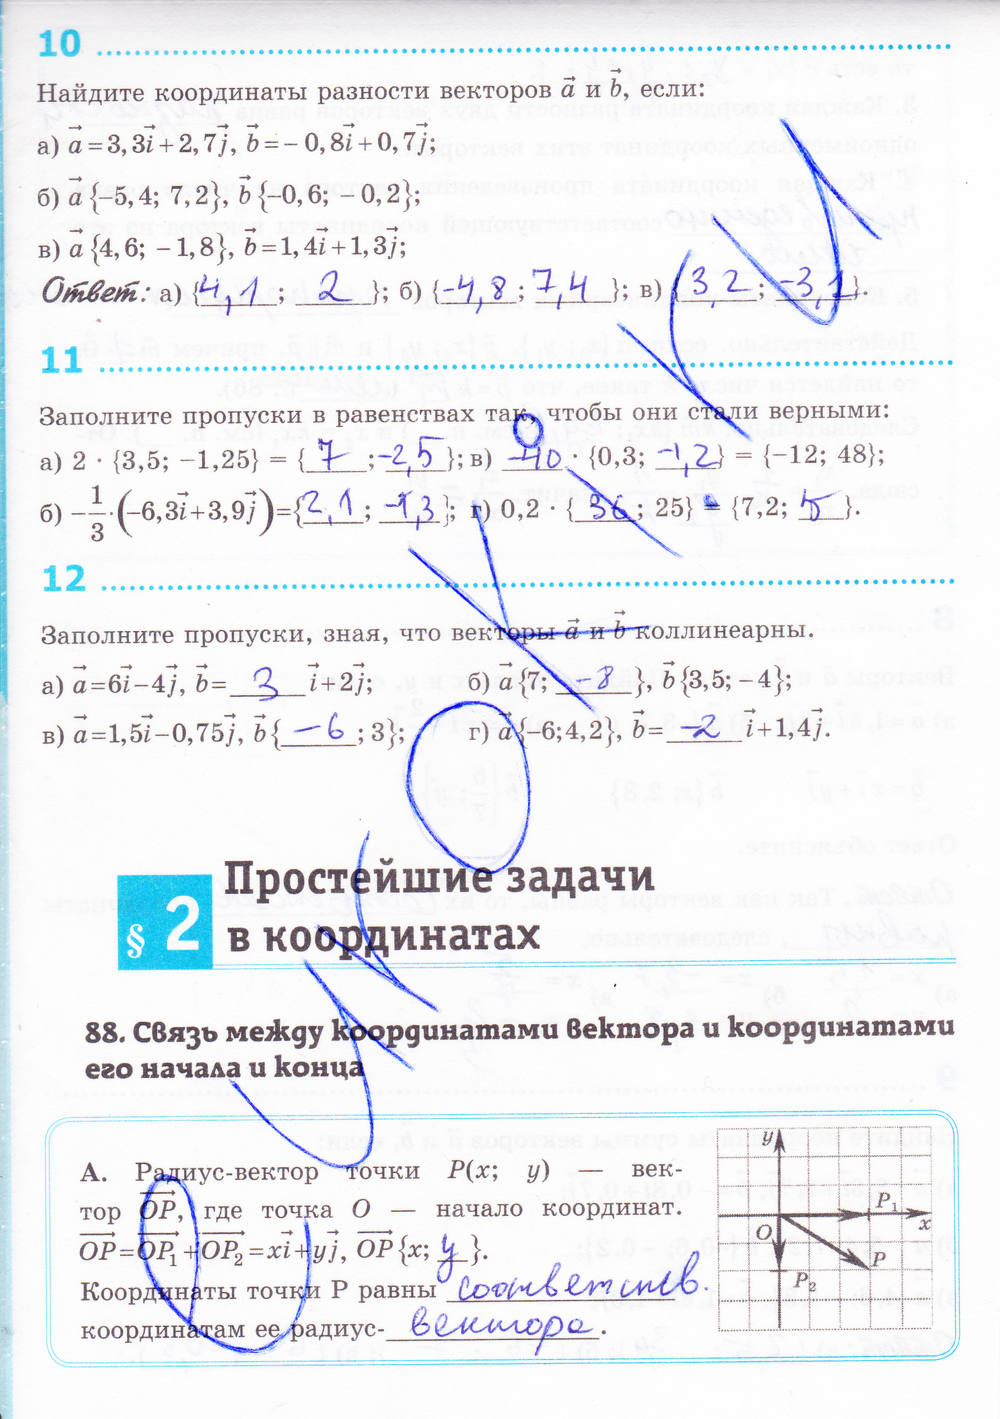 10
Найдите координаты разности векторов a⃗ и b⃗, если:
а) a⃗ = 3,3i⃗ + 2,7j⃗, b⃗ = – 0,8i⃗ + 0,7j⃗;
б) a⃗ {–5,4; 7,2}, b⃗ {–0,6; – 0,2};
в) a⃗ {4,6; – 1,8}, b⃗ = 1,4i⃗ + 1,3j⃗;
Ответ: а) {4,1; 2}; б) {-4,8; 7,4}; в) {3,2; -3,1}.
11
Заполните пропуски в равенствах так, чтобы они стали верными:
а) 2 · {3,5; –1,25} = {7; -2,5}; в) -40 · {0,3; -1,2} = {–12; 48};
б) –1/3 · (–6,3i⃗ + 3,9j⃗) = {2,1; -1,3}; г) 0,2 · {36; 25} = {7,2; 5}.
12
Заполните пропуски, зная, что векторы a⃗ и b⃗ коллинеарны.
а) a⃗ = 6i⃗ – 4j⃗, b⃗ = -3 i⃗ + 2j⃗; б) a⃗ {7; -8}, b⃗ {3,5; – 4};
в) a⃗ = 1,5i⃗ – 0,75j⃗, b⃗ {-6; 3}; г) a⃗ {–6; 4,2}, b⃗ = -2 i⃗ + 1,4j⃗.
§ 2 Простейшие задачи
в координатах
88. Связь между координатами вектора и координатами
его начала и конца
А. Радиус-вектор точки P(x; y) — век-
тор OP⃗, где точка O — начало координат.
OP⃗ = OP₁⃗ + OP₂⃗ = xi⃗ + yj⃗, OP⃗ {x; y}.
Координаты точки P равны соответств.
координатам ее радиус-вектора.
y
O
P₁
x
P
P₂